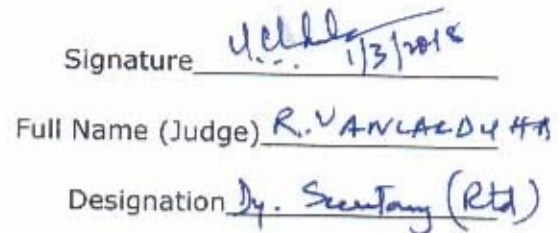 Signature 1/3/2018
Full Name (Judge) R. VANLALDUHA
Designation Dy. Secretary (Rtd)